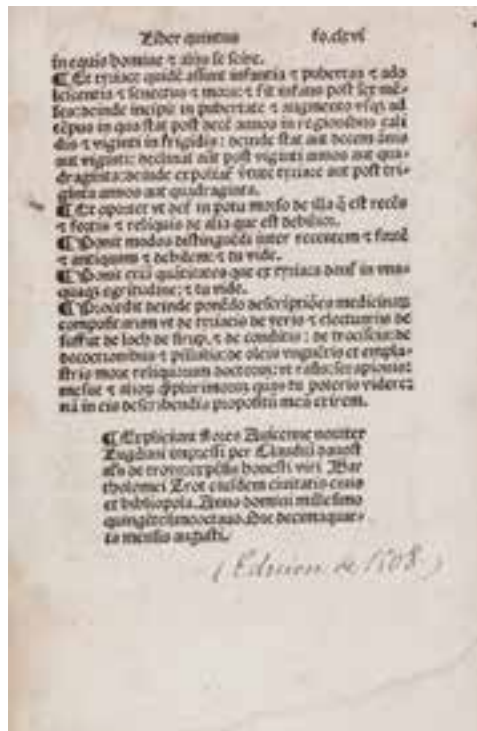 Liber quintus fo.clxvi
in equis bonitas ⁊ alias se scire.
¶ Et tyriace quidē assint infantia ⁊ pubertas ⁊ ado
lescentia ⁊ senectus ⁊ mors: ⁊ fit infans post sex mē-
ses: deinde incipit in pubertate ⁊ augmento vsq̄ ad
tēpus in quo stat post decē annos in regionibus cali
dis ⁊ viginti in frigidis: deinde stat aut decem ānis
aut viginti: declinat aūt post viginti annos aut qua-
draginta: deinde tyriace aut post tri-
ginta annos aut quadraginta.
¶ Et oportet vt det̄ in potu morso de illa q̄ est recēs
⁊ fortis ⁊ reliquis de alia que est debilior.
¶ Ponit modos distinguēdi inter recentem ⁊ fortē
⁊ antiquam ⁊ debilem: ⁊ tu vide.
¶ Ponit etiā quātitates que ex tyriaca det̄ in vna-
quaq̄ egritudine: ⁊ tu vide.
¶ Procedit deinde ponēdo descriptiōes medicinarum
compositarum vt de tyriacis de yeris ⁊ electuariis de
suffuf de loch de sirup. ⁊ de conditis: de trociscis: de
decoctionibus ⁊ pillulis: de oleis vnguētis et empla-
stris more reliquorum doctorum: vt rasis: serapionis:
mesue ⁊ alioꝝ q̄plurimorum quos tu poteris videre:
nā in eis describendis propositū meū exirem.
¶ Expliciunt flores Auicenne nouiter
Lugduni impressi per Claudiū dauost
al's de troys: expēsis honesti viri Bar
tholomei Trot eiusdem ciuitatis ciuis
et bibliopola. Anno domini millesimo
quingētesimooctauo. Die decimaquar-
ta mensis augusti.
(Edicion de 1508)